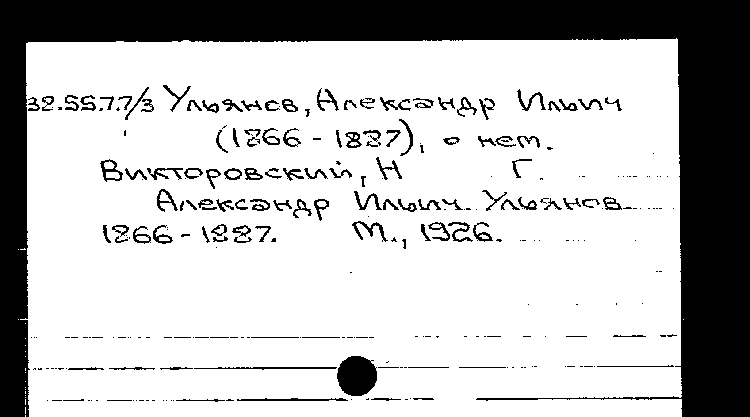 32.55.7.7/3 Ульянов, Александр Ильич
(1866 - 1887), о нем.
Викторовский, Н Г.
Александр Ильич Ульянов
1866 - 1887. М., 1926.